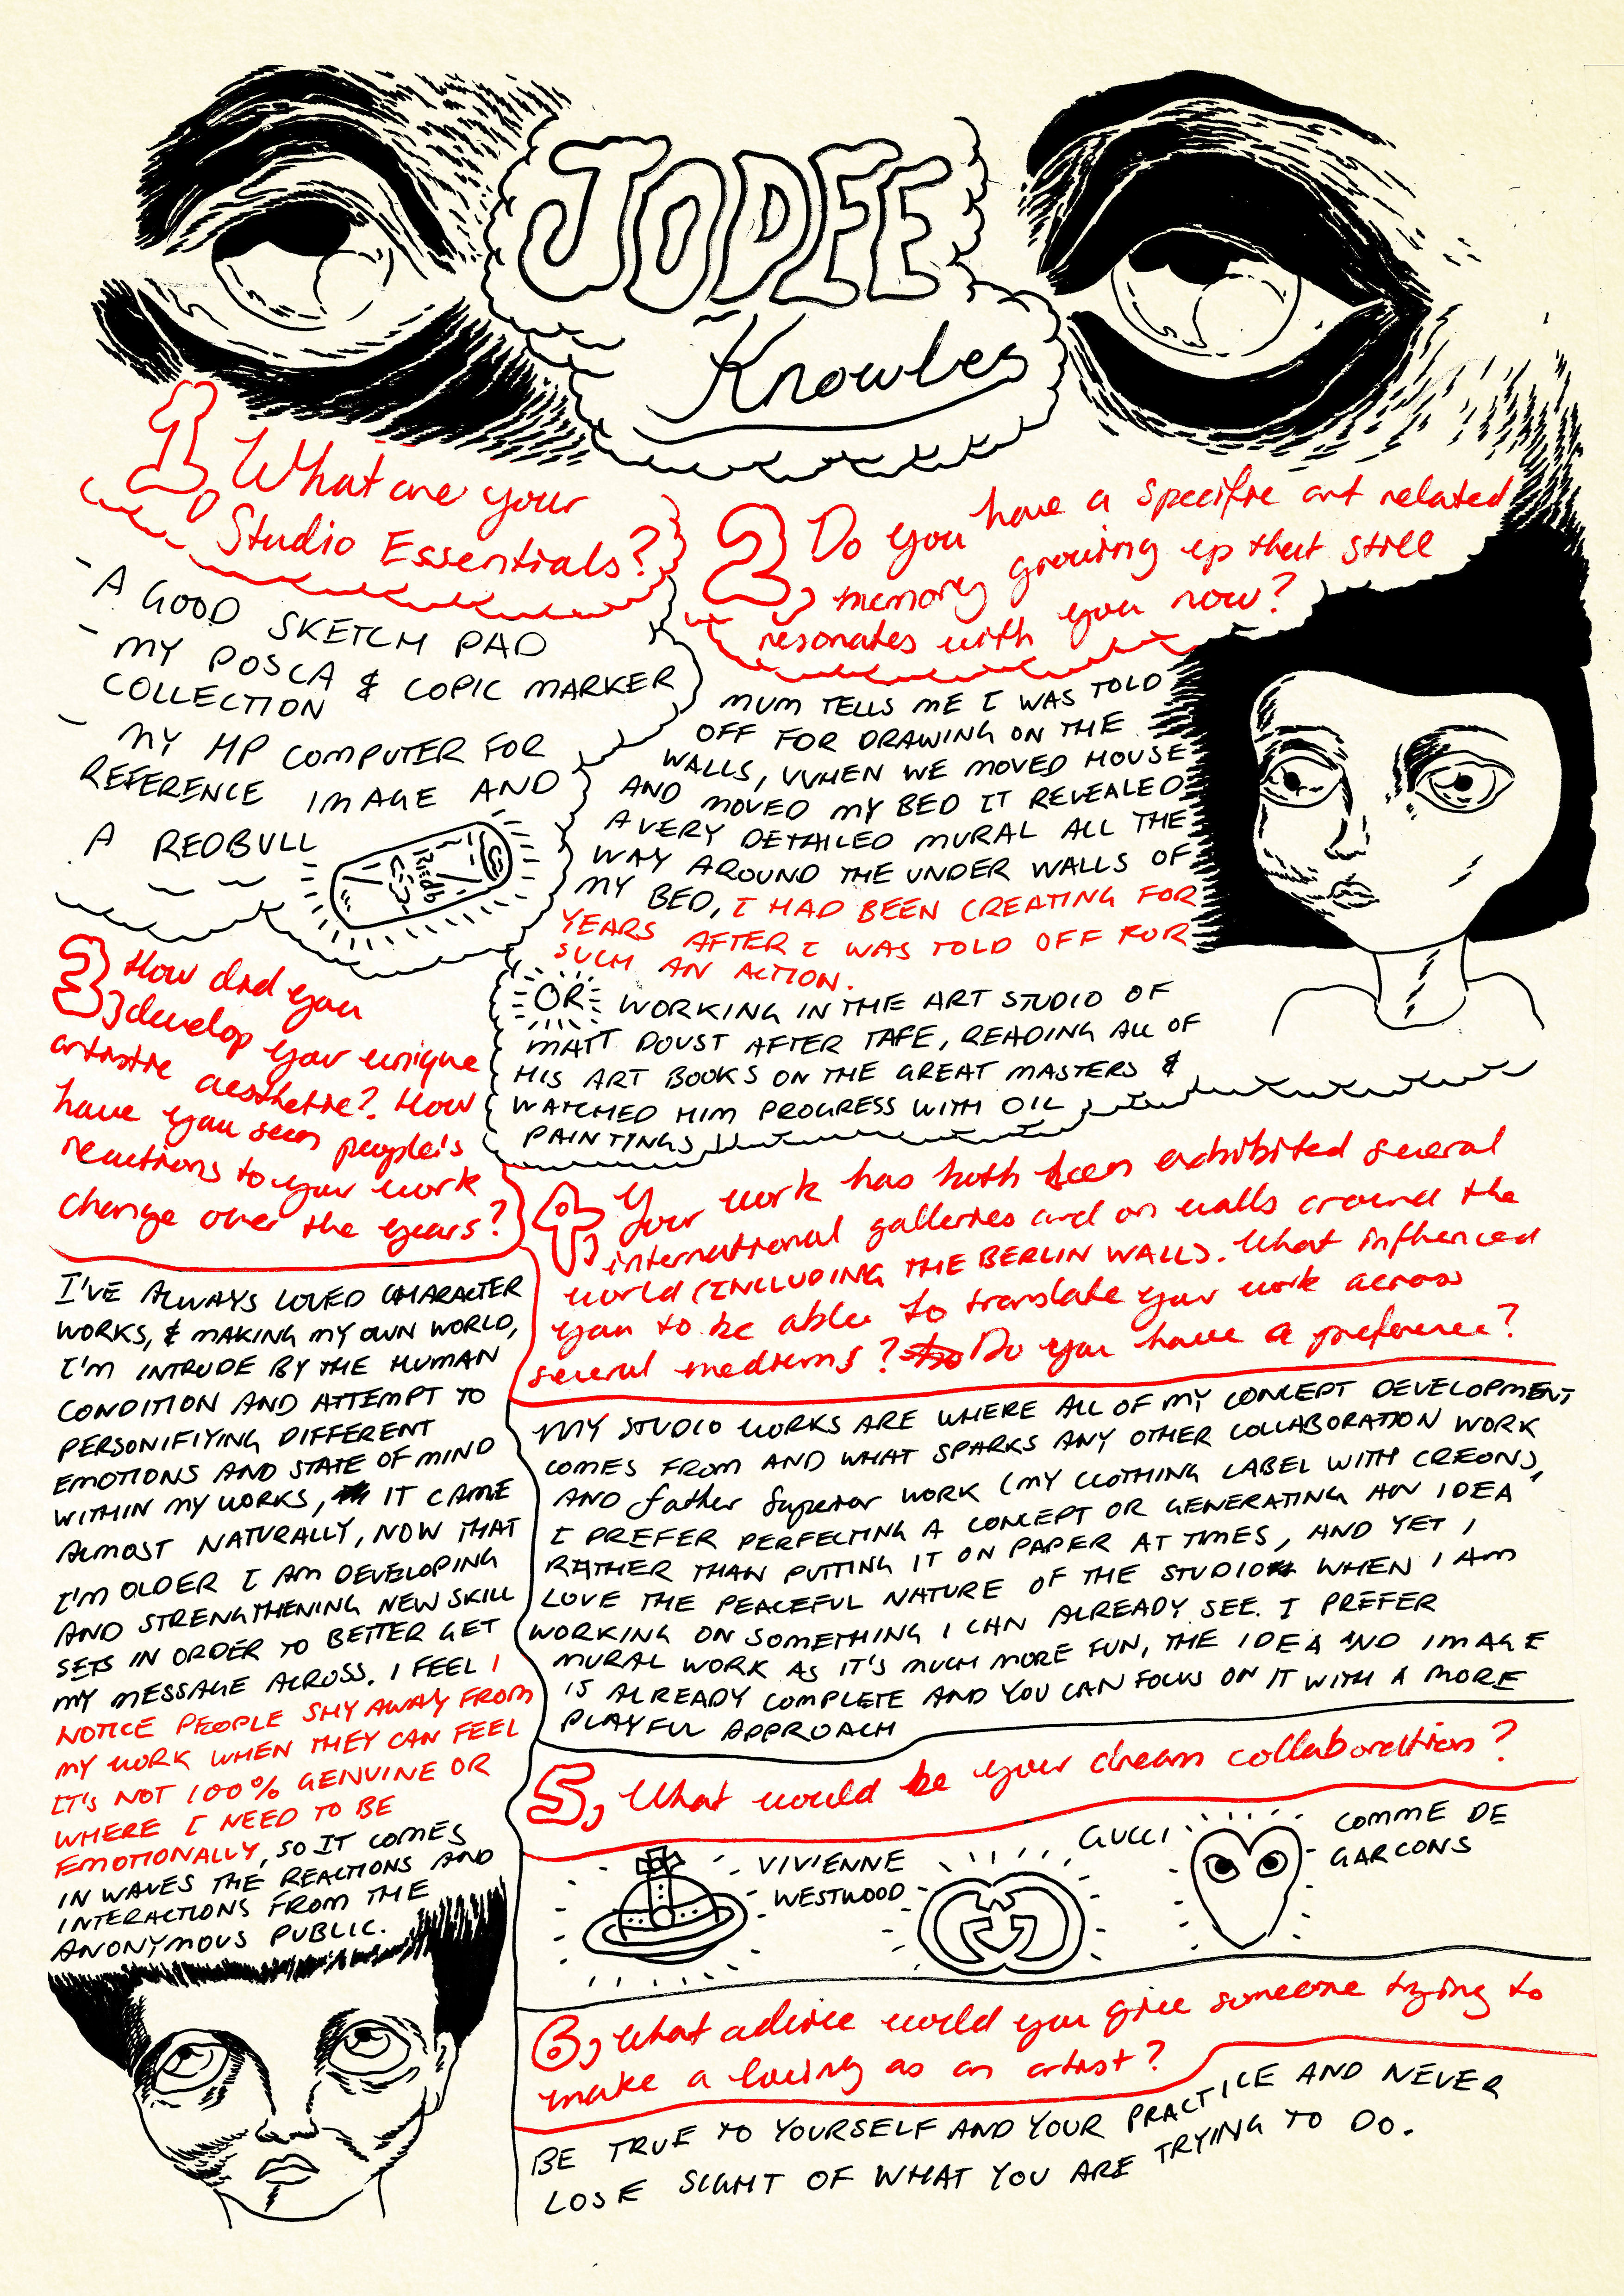 JODEE
Knowles
1. What are your
Studio Essentials?
- A GOOD SKETCH PAD
- MY POSCA & COPIC MARKER
COLLECTION
- MY HP COMPUTER FOR
REFERENCE IMAGE AND
A REDBULL
RedB
2, Do you have a specific art related
memory growing up that still
resonates with you now?
MUM TELLS ME I WAS TOLD
OFF FOR DRAWING ON THE
WALLS, WHEN WE MOVED HOUSE
AND MOVED MY BED IT REVEALED
A VERY DETAILED MURAL ALL THE
WAY AROUND THE UNDER WALLS OF
MY BED, I HAD BEEN CREATING FOR
YEARS AFTER I WAS TOLD OFF FOR
SUCH AN ACTION.
OR WORKING IN THE ART STUDIO OF
MATT DOUST AFTER TAFE, READING ALL OF
HIS ART BOOKS ON THE GREAT MASTERS &
WATCHED HIM PROGRESS WITH OIL
PAINTINGS
3, How did you
develop your unique
artistic aesthetic? How
have you seen people's
reactions to your work
change over the years?
I'VE ALWAYS LOVED CHARACTER
WORKS, & MAKING MY OWN WORLD,
I'M INTRUDE BY THE HUMAN
CONDITION AND ATTEMPT TO
PERSONIFIYING DIFFERENT
EMOTIONS AND STATE OF MIND
WITHIN MY WORKS, IT CAME
ALMOST NATURALLY, NOW THAT
I'M OLDER I AM DEVELOPING
AND STRENGTHENING NEW SKILL
SETS IN ORDER TO BETTER GET
MY MESSAGE ACROSS. I FEEL I
NOTICE PEOPLE SHY AWAY FROM
MY WORK WHEN THEY CAN FEEL
IT'S NOT 100% GENUINE OR
WHERE I NEED TO BE
EMOTIONALLY, SO IT COMES
IN WAVES THE REACTIONS AND
INTERACTIONS FROM THE
ANONYMOUS PUBLIC.
4, Your work has both been exhibited several
international galleries and on walls around the
world (INCLUDING THE BERLIN WALL). What influenced
you to be able to translate your work across
several mediums? Do you have a preference?
MY STUDIO WORKS ARE WHERE ALL OF MY CONCEPT DEVELOPMENT
COMES FROM AND WHAT SPARKS ANY OTHER COLLABORATION WORK
AND father Superior WORK (MY CLOTHING LABEL WITH CREON),
I PREFER PERFECTING A CONCEPT OR GENERATING AN IDEA
RATHER THAN PUTTING IT ON PAPER AT TIMES, AND YET I
LOVE THE PEACEFUL NATURE OF THE STUDIO WHEN I AM
WORKING ON SOMETHING I CAN ALREADY SEE. I PREFER
MURAL WORK AS IT'S MUCH MORE FUN, THE IDEA AND IMAGE
IS ALREADY COMPLETE AND YOU CAN FOCUS ON IT WITH A MORE
PLAYFUL APPROACH
5, What would be your dream collaboration?
VIVIENNE
WESTWOOD
GUCCI
COMME DE
GARCONS
6, What advice would you give someone trying to
make a living as an artist?
BE TRUE TO YOURSELF AND YOUR PRACTICE AND NEVER
LOSE SIGHT OF WHAT YOU ARE TRYING TO DO.